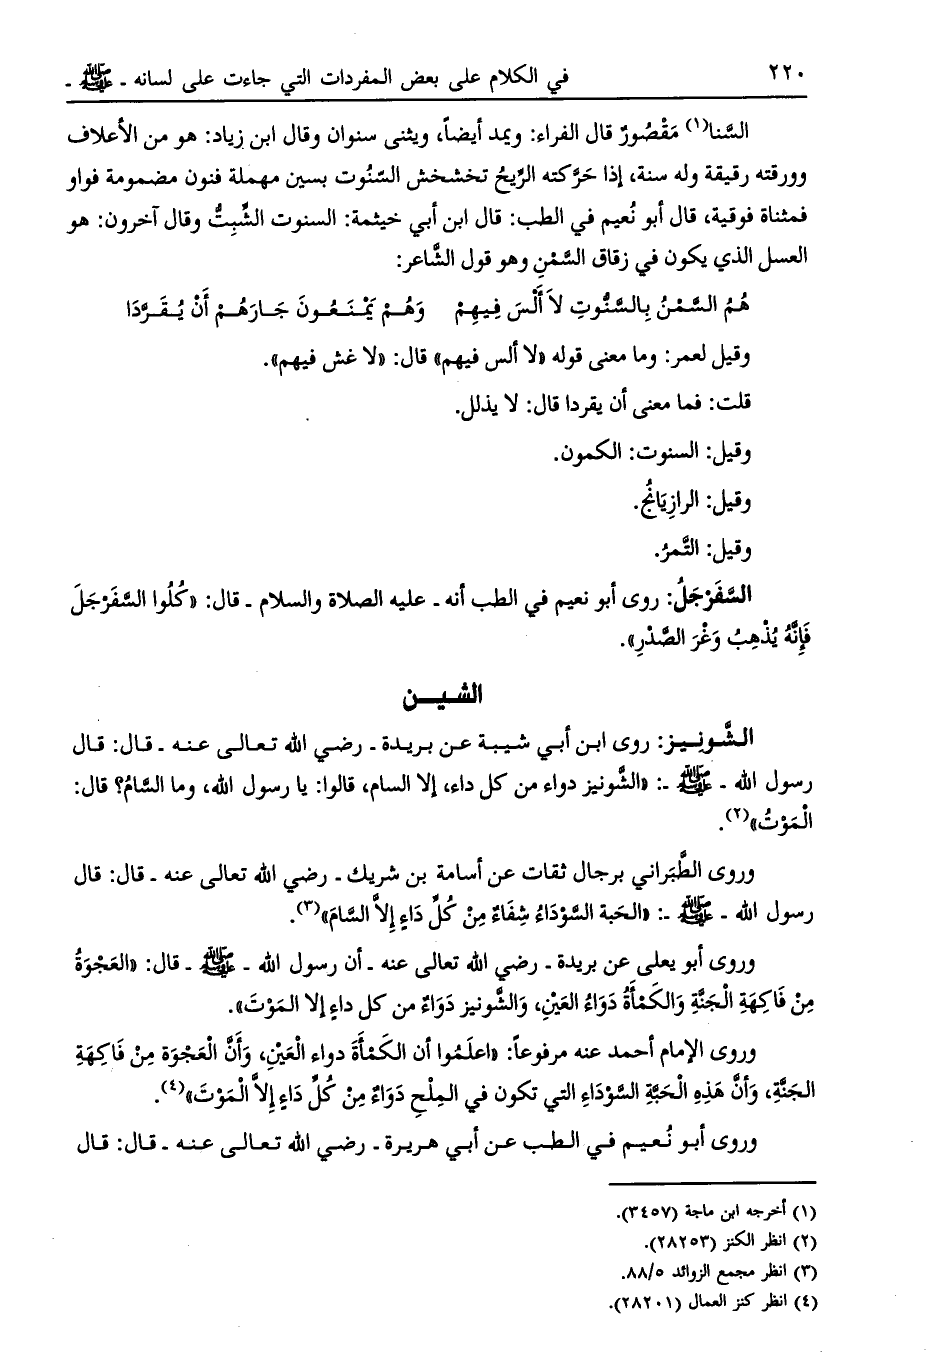 ٢٢٠ في الكلام على بعض المفردات التي جاءت على لسانه - ﷺ -
السَّنا(١) مَقْصُورٌ قال الفراء: ويمد أيضاً، ويثنى سنوان وقال ابن زياد: هو من الأعلاف
وورقته رقيقة وله سنة، إذا حَرَّكته الرِّيحُ تخشخش السَّنُوت بسين مهملة فنون مضمومة فواو
فمثناة فوقية، قال أبو نُعيم في الطب: قال ابن أبي خيثمة: السنوت الشِّبِتُّ وقال آخرون: هو
العسل الذي يكون في زقاق السَّمْنِ وهو قول الشَّاعر:
هُمُ السَّمْنُ بِالسَّنُّوتِ لاَ أَلْسَ فِيهِمْ وَهُمْ يَمْنَعُونَ جَارَهُمْ أَنْ يُقَرَّدَا
وقيل لعمر: وما معنى قوله «لا ألس فيهم» قال: «لا غش فيهم».
قلت: فما معنى أن يقردا قال: لا يذلل.
وقيل: السنوت: الكمون.
وقيل: الرازِيَانُج.
وقيل: التَّمرُ.
السَّفَرْجَلُ: روى أبو نعيم في الطب أنه - عليه الصلاة والسلام - قال: «كُلُوا السَّفَرْجَلَ
فَإِنَّهُ يُذْهِبُ وَغْرَ الصَّدْرِ».
الشيـن
الشُّونِيز: روى ابن أبي شيبة عن بريدة - رضي الله تعالى عنه - قال: قال
رسول الله - ﷺ -: «الشُّونيز دواء من كل داء، إلا السام، قالوا: يا رسول الله، وما السَّامُ؟ قال:
الْمَوْتُ»(٢).
وروى الطَّبَراني برجال ثقات عن أسامة بن شريك - رضي الله تعالى عنه - قال: قال
رسول الله - ﷺ -: «الحَبة السَّوْدَاءُ شِفَاءٌ مِنْ كُلِّ دَاءٍ إِلاَّ السَّامَ»(٣).
وروى أبو يعلى عن بريدة - رضي الله تعالى عنه - أن رسول الله - ﷺ - قال: «العَجْوَةُ
مِنْ فَاكِهَةِ الْجَنَّةِ وَالكَمْأَةُ دَوَاءُ العَيْنِ، وَالشُّونيز دَوَاءٌ من كل داءٍ إلا المَوْتَ».
وروى الإمام أحمد عنه مرفوعاً: «اعلَمُوا أن الكَمْأَةَ دواء الْعَيْنِ، وَأَنَّ الْعَجْوَةَ مِنْ فَاكِهَةِ
الجَنَّةِ، وَأَنَّ هَذِهِ الْحَبَّةِ السَّوْدَاءِ التي تكون في المِلْحِ دَوَاءٌ مِنْ كُلِّ دَاءٍ إِلاَّ الْمَوْتَ»(٤).
وروى أبو نُعيم في الطب عن أبي هريرة - رضي الله تعالى عنه - قال: قال
(١) أخرجه ابن ماجة (٣٤٥٧).
(٢) انظر الكنز (٢٨٢٥٣).
(٣) انظر مجمع الزوائد ٨٨/٥.
(٤) انظر كنز العمال (٢٨٢٠١).